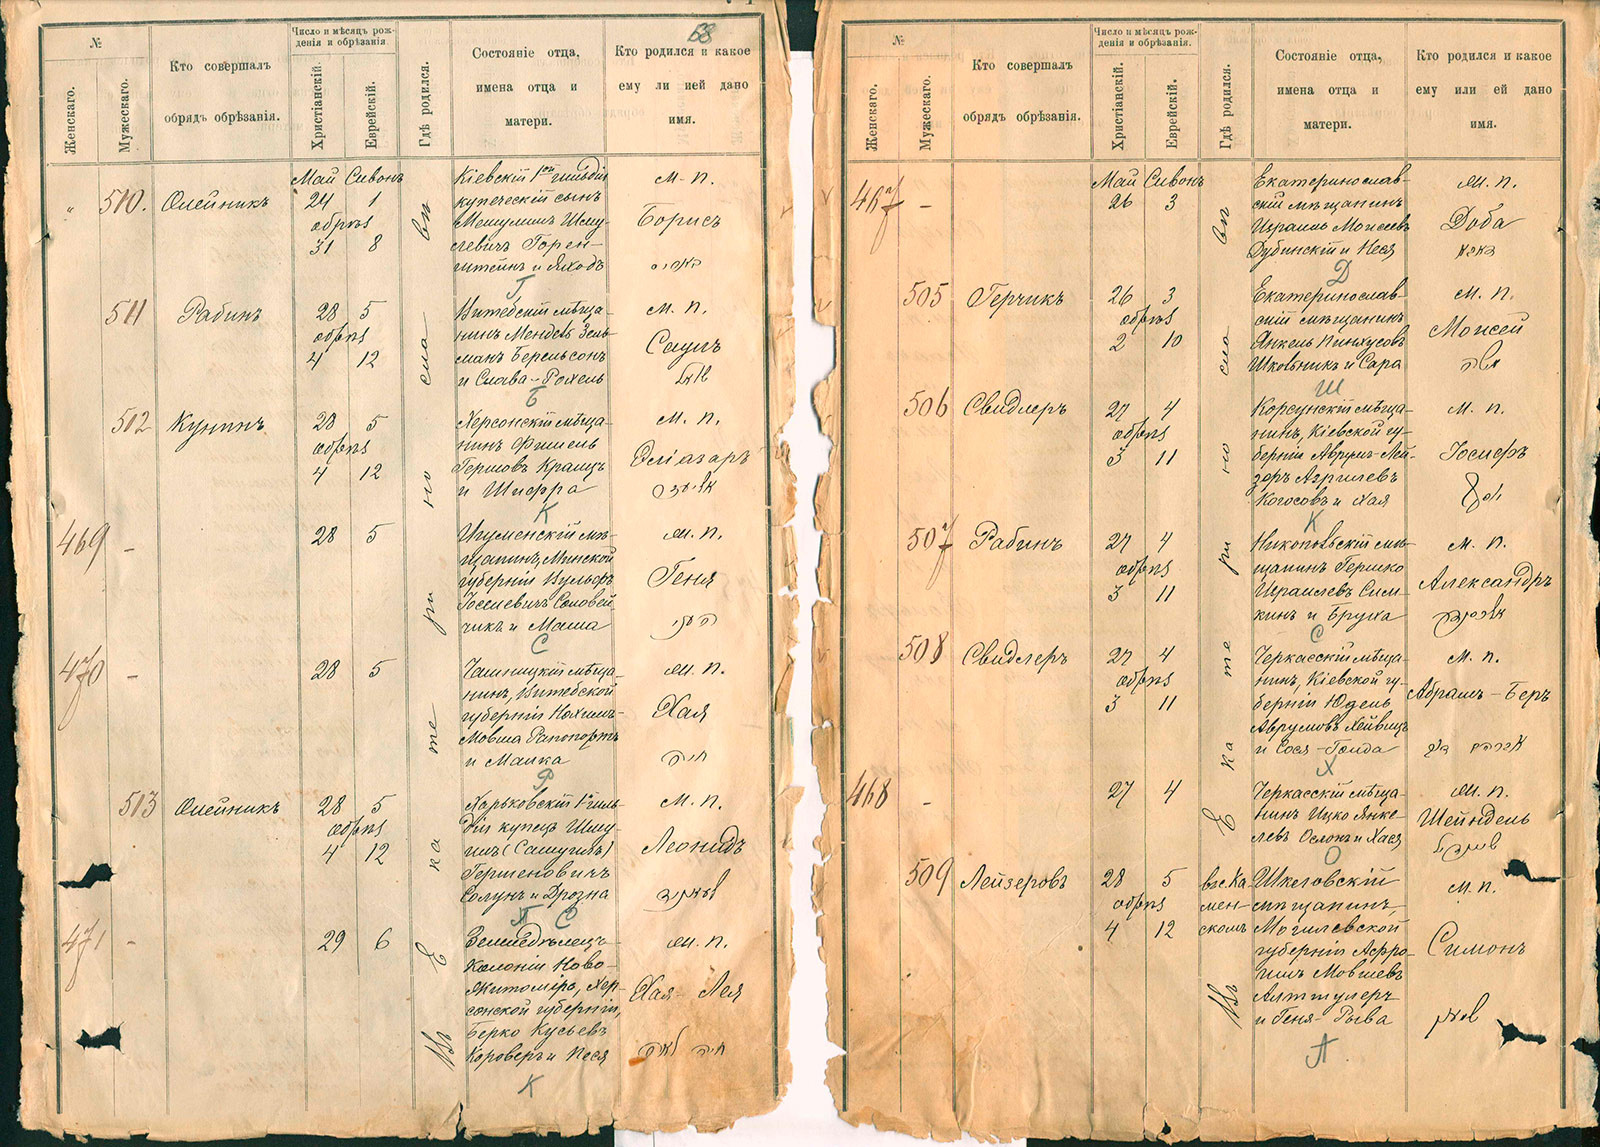 58
№
Женскаго.
Мужескаго.
Кто совершалъ
обрядъ обрѣзанія.
Число и мѣсяцъ рож-
денія и обрѣзанія.
Христіанскій.
Еврейскій.
Гдѣ родился.
Состояніе отца,
имена отца и
матери.
Кто родился и какое
ему или ней дано
имя.
Май Сивонъ
510. Олейникъ
24 1
обрѣз
31 8
Кіевскій 1ой гильдіи
купеческій сынъ
Мешулимъ Шму-
левичъ Горен-
штейнъ и
Г
м. п.
Борисъ
511 Рабинъ
28 5
обрѣз
4 12
Витебскій мѣща-
нинъ Мендель Зель-
манъ Берельсонъ
и Слава-Рохель
Б
м. п.
Саулъ
512 Кунинъ
28 5
обрѣз
4 12
Херсонскій мѣща-
нинъ Фишель
Гершовъ Кранцъ
и Шифра
К
м. п.
Эліазаръ
469 -
28 5
Игуменскій мѣ-
щанинъ, Минской
губерніи Вульфъ
Іоселевичъ Соловей-
чикъ и Маша
С
ж. п.
Геня
470 -
28 5
Чашницкій мѣща-
нинъ, Витебской
губерніи Нохимъ-
Мовша Рапопортъ
и Малка
Р
ж. п.
Хая
חיה
513 Олейникъ
28 5
обрѣз
4 12
Харьковскій 1й гиль-
діи купецъ Шму-
илъ (Самуилъ)
Гершеновичъ
и Дрозна
С
м. п.
Леонидъ
471 -
29 6
Земледѣлецъ
Колоніи Ново-
Житоміръ, Хер-
сонской губерніи,
Берко Кусьевъ
Короверъ и Песя
К
ж. п.
Хая-Лея
חיה לאה
Въ Екатеринославѣ
№
Женскаго.
Мужескаго.
Кто совершалъ
обрядъ обрѣзанія.
Число и мѣсяцъ рож-
денія и обрѣзанія.
Христіанскій.
Еврейскій.
Гдѣ родился.
Состояніе отца,
имена отца и
матери.
Кто родился и какое
ему или ей дано
имя.
Май Сивонъ
467 -
26 3
Екатеринослав-
скій мѣщанинъ
Израиль Моисеевъ
Дубинскій и Неся
Д
ж. п.
Доба
505 Герчикъ
26 3
обрѣз
2 10
Екатеринослав-
скій мѣщанинъ
Янкель Пинхусовъ
Школьникъ и Сара
Ш
м. п.
Моисей
משה
506 Свидлеръ
27 4
обрѣз
3 11
Корсунскій мѣща-
нинъ, Кіевской гу-
берніи Аврумъ-Лей-
зеръ Азрилевъ
Когосовъ и Хая
К
м. п.
Іосифъ
יוסף
507 Рабинъ
27 4
обрѣз
3 11
Никопольскій мѣ-
щанинъ Гершко
Израилевъ Сим-
кинъ и Бруха
С
м. п.
Александръ
508 Свидлеръ
27 4
обрѣз
3 11
Черкасскій мѣща-
нинъ, Кіевской гу-
берніи Юдель
Аврумовъ Хейвицъ
и Сося-Голда
Х
м. п.
Абрамъ-Беръ
אברהם בער
468 -
27 4
Черкасскій мѣща-
нинъ Ицко Янке-
левъ Ослонъ и Хася
О
ж. п.
Шейндель
509 Лейзеровъ
28 5
обрѣз
4 12
въ с. Ка-
мен-
скомъ
Шкловскій
мѣщанинъ,
Могилевской
губерніи Афро-
имъ Мовшевъ
Альтшулеръ
и Геня-Рыва
А.
м. п.
Симонъ
שמעון
Въ Екатеринославѣ